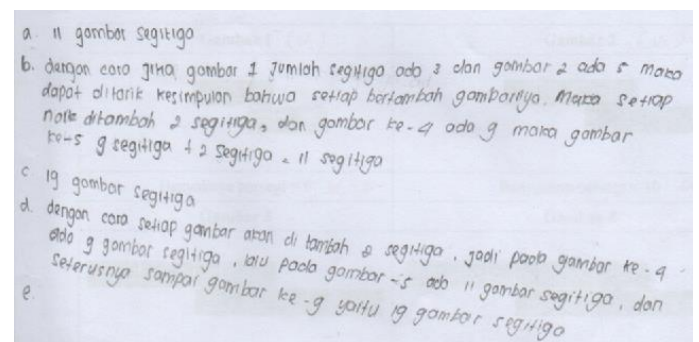 a. 11 gambar segitiga
b. dengan cara jika gambar 1 jumlah segitiga ada 3 dan gambar 2 ada 5 maka
dapat ditarik kesimpulan bahwa setiap bertambah gambarnya. Maka setiap
naik ditambah 2 segitiga, dan gambar ke-4 ada 9 maka gambar
ke-5 9 segitiga + 2 segitiga = 11 segitiga
c 19 gambar segitiga
d. dengan cara setiap gambar akan di tambah 2 segitiga, jadi pada gambar ke-4
ada 9 gambar segitiga, lalu pada gambar -5 ada 11 gambar segitiga, dan
seterusnya sampai gambar ke-9 yaitu 19 gambar segitiga
e.